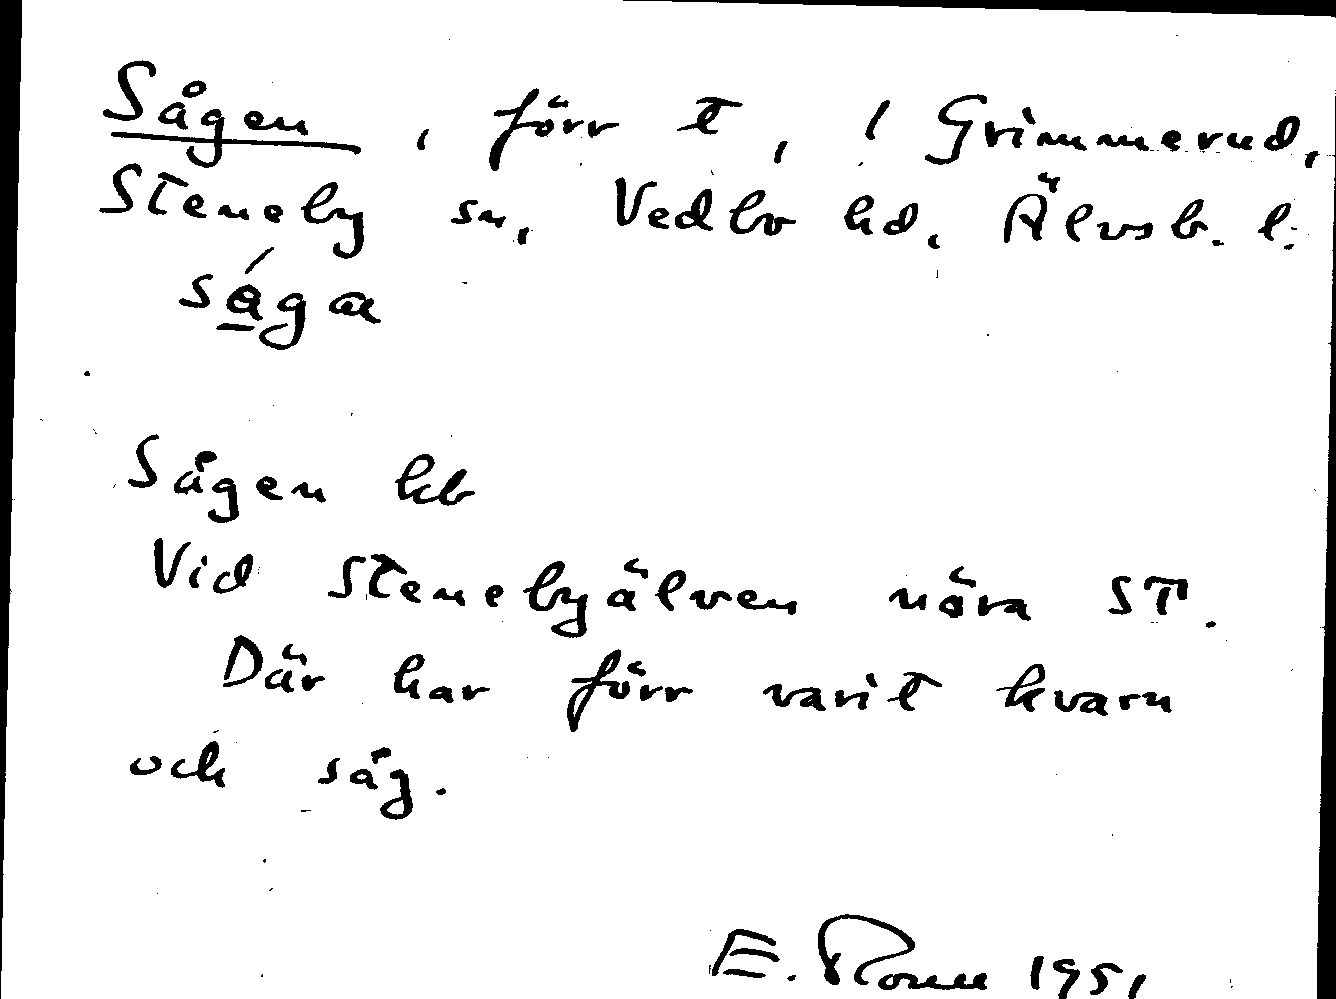 Sågen, förr t, 1 Grimmerud,
Steneby sn, Vedbo hd, Älvsb. l.
sågæ
Sågen kb
Vid Stenebyälven nära ST.
Där har förr varit kvarn
och såg.
E. 1951